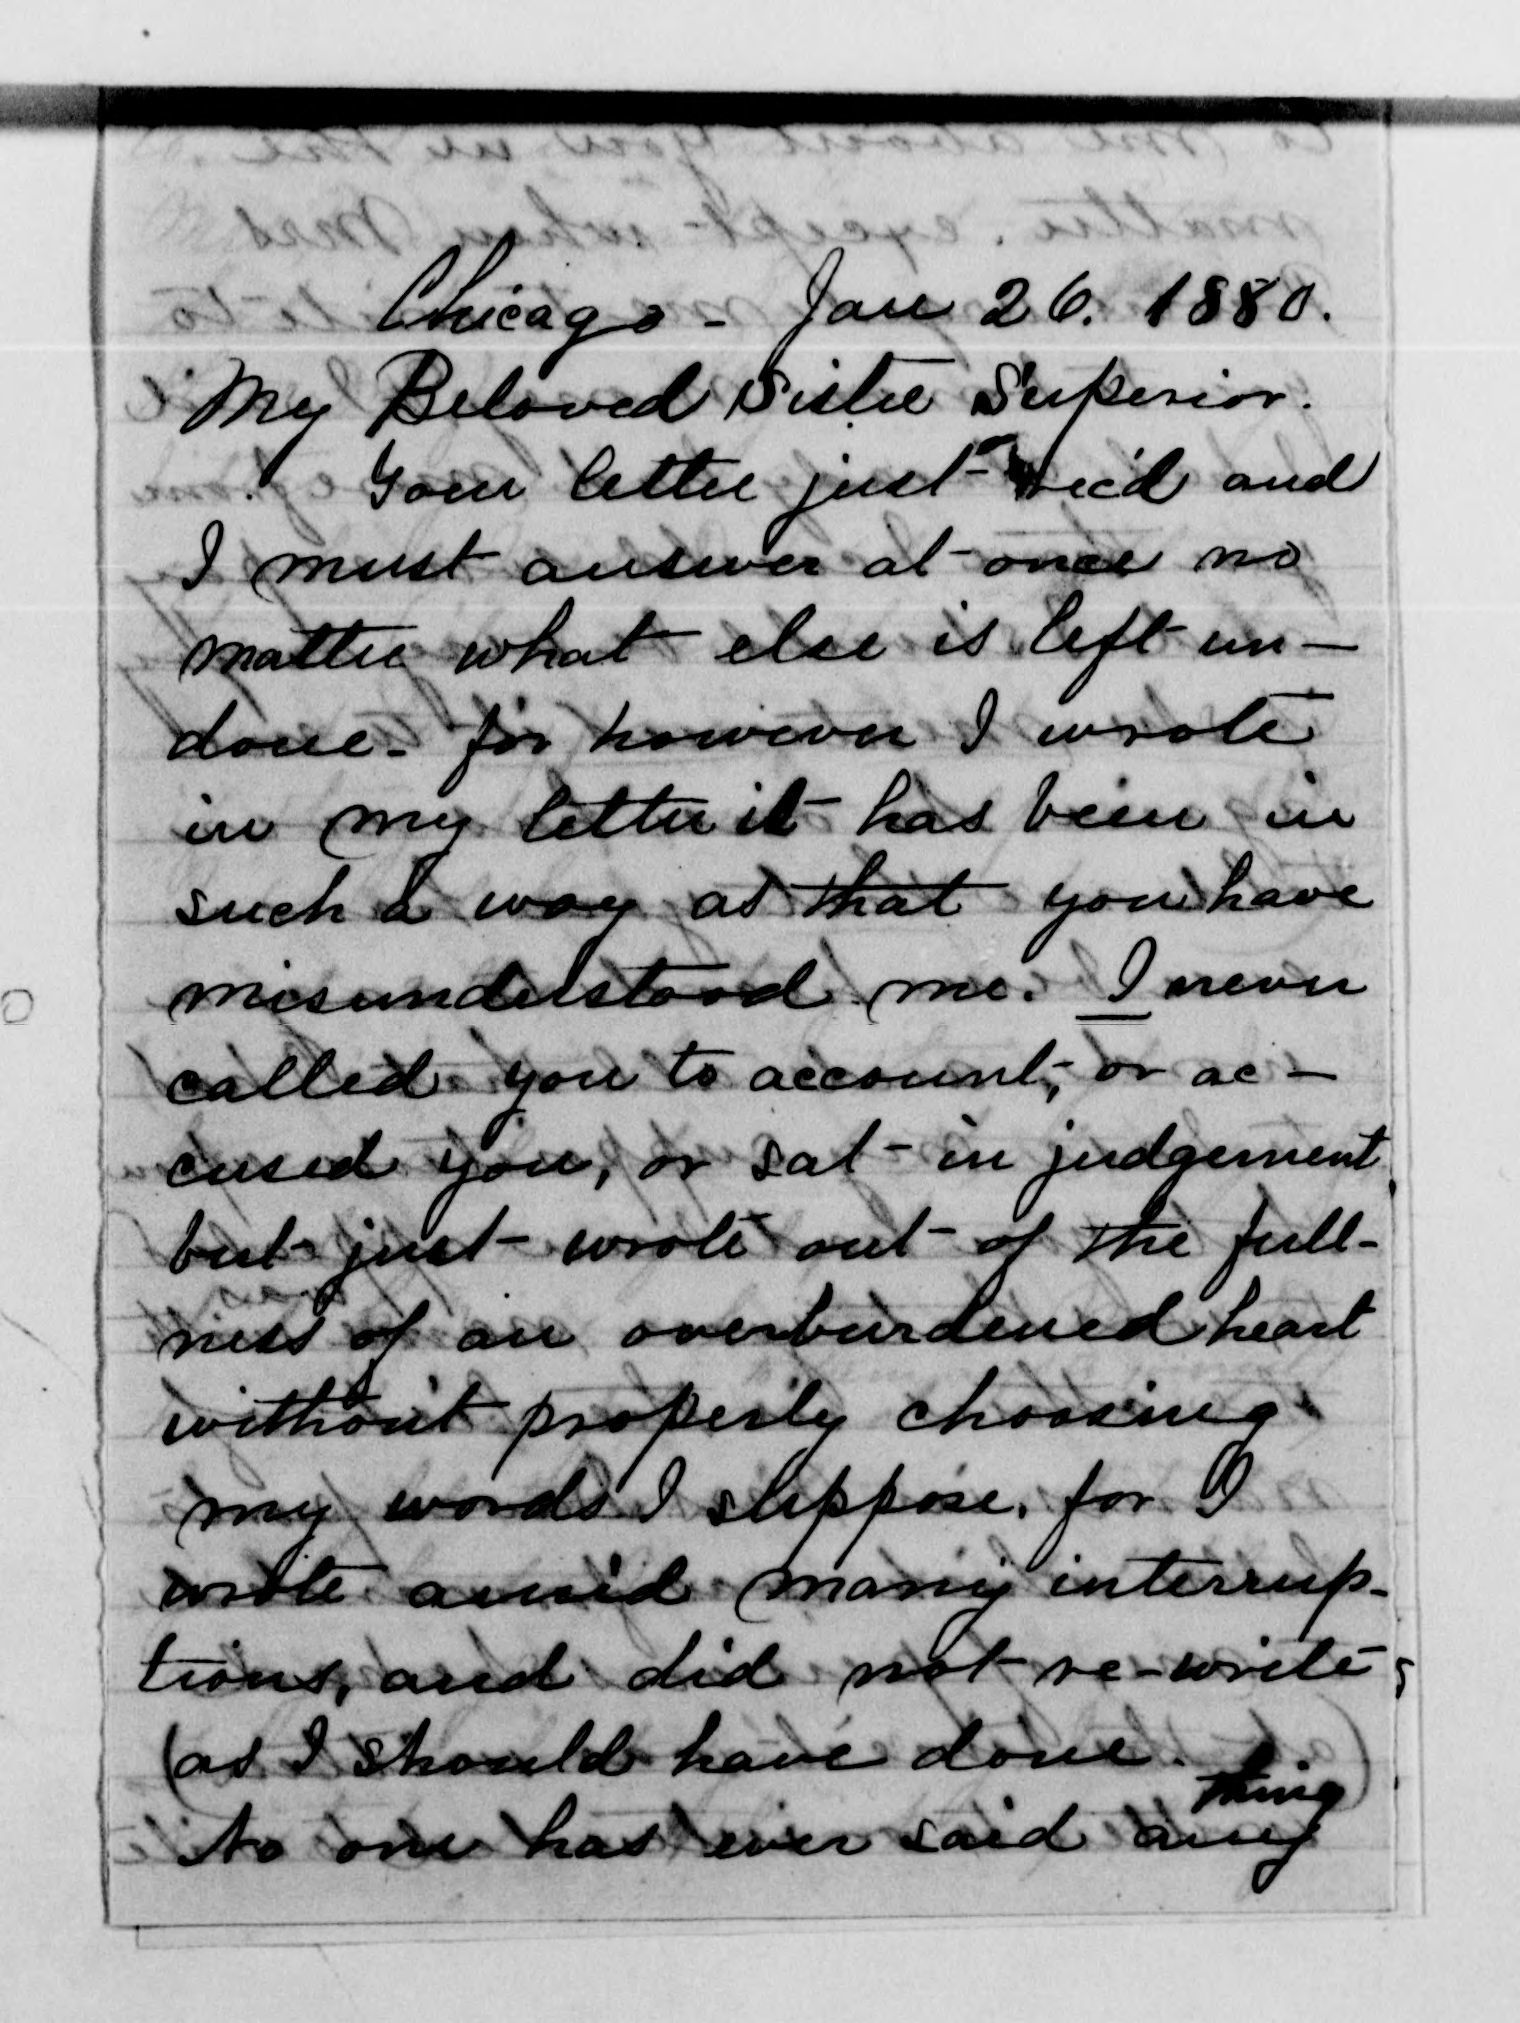 Chicago - Jan 26. 1880.
My Beloved Sister Superior.
Your letter just rec'd and
I must answer at once no
matter what else is left un-
done - for however I wrote
in my letter it has been in
such a way as that you have
misunderstood me. I never
called you to account, or ac-
cused you, or sat in judgement
but just wrote out of the full-
ness of an overburdened heart
without properly choosing
my words I suppose, for I
wrote amid many interrup-
tions, and did not re-write
as I should have done.
No one has ever said any thing